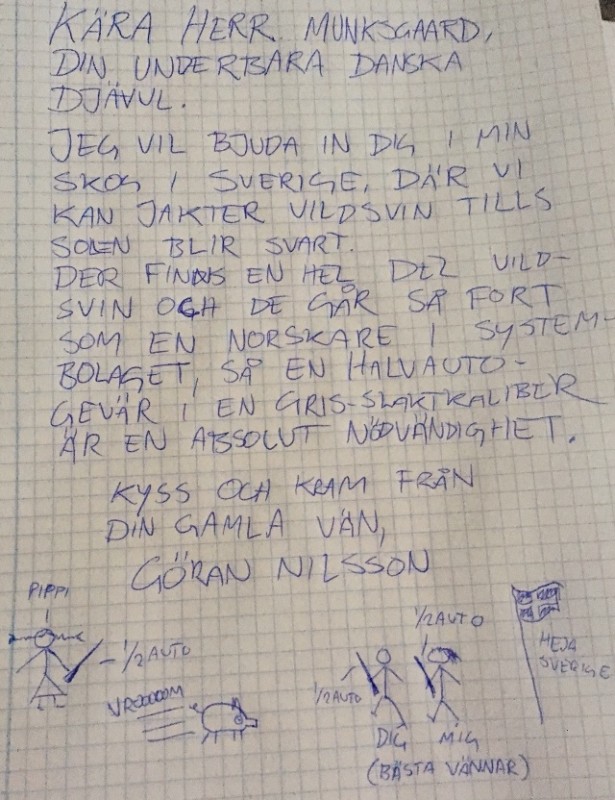 KÄRA HERR MUNKSGAARD,
DIN UNDERBARA DANSKA
DJÄVUL.
JEG VIL BJUDA IN DIG I MIN
SKOG I SVERIGE, DÄR VI
KAN JAKTER VILDSVIN TILLS
SOLEN BLIR SVART.
DER FINNS EN HEL DEL VILD-
SVIN OCH DE GÅR SÅ FORT
SOM EN NORSKARE I SYSTEM-
BOLAGET, SÅ EN HALVAUTO-
GEVÄR I EN GRIS-SLAKTKALIBER
ÄR EN ABSOLUT NÖDVÄNDIGHET.
KYSS OCH KRAM FRÅN
DIN GAMLA VÄN,
GÖRAN NILSSON
PIPPI
1/2 AUTO
VROOOOOM
1/2 AUTO
1/2 AUTO
HEJA
SVERIGE
DIG MIG
(BÄSTA VÄNNAR)